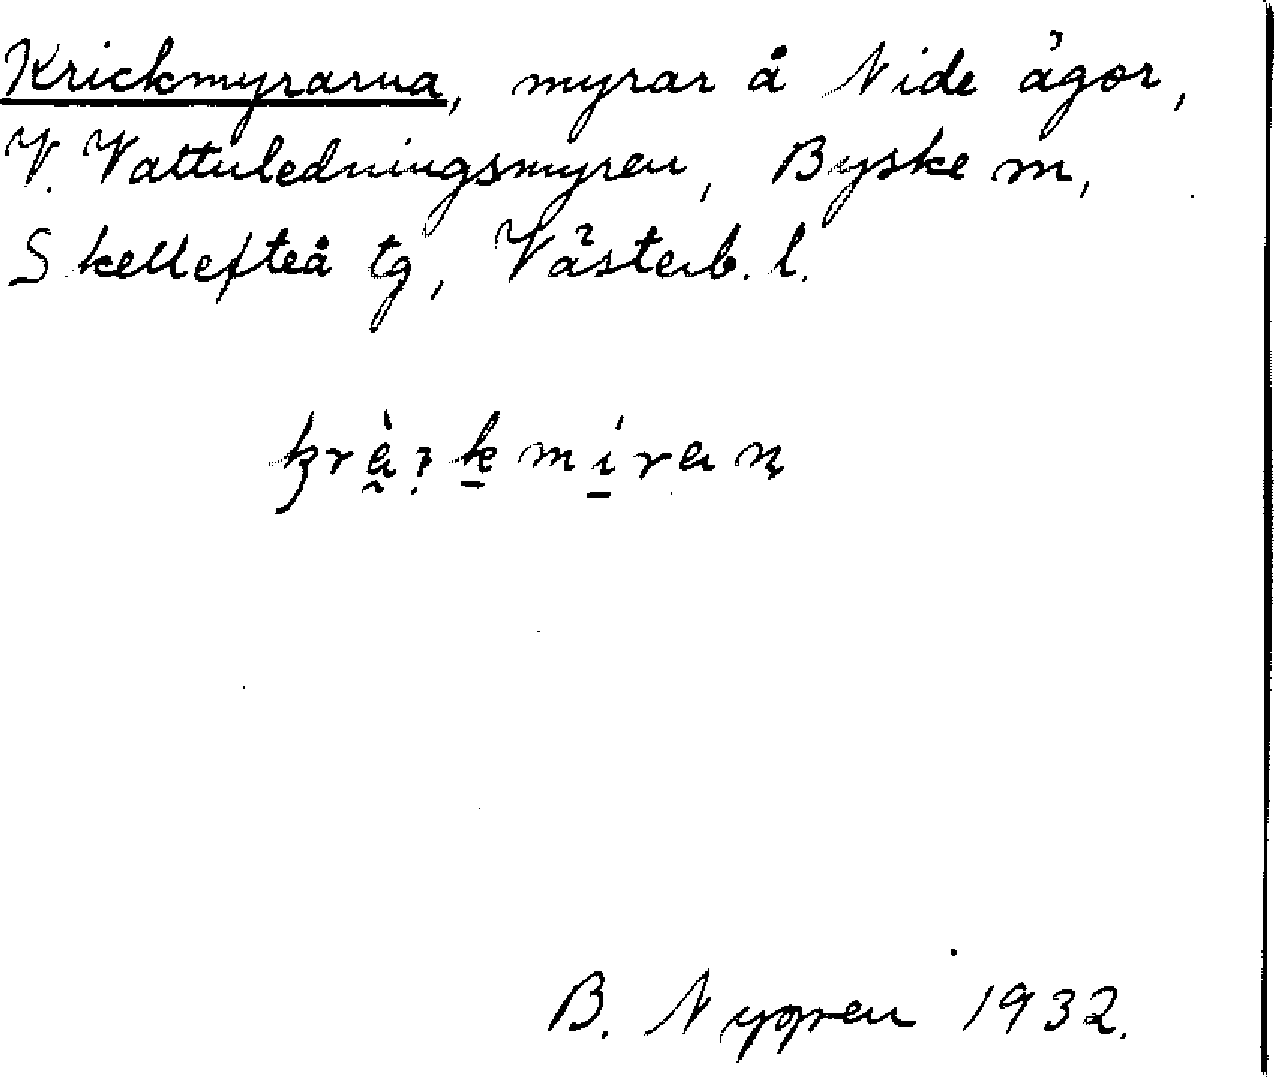 Krickmyrarna, myrar å Nide ägor,
V. Vattuledningsmyren, Byske sn,
Skellefteå tg, Västerb. l.
B. Nygren 1932.